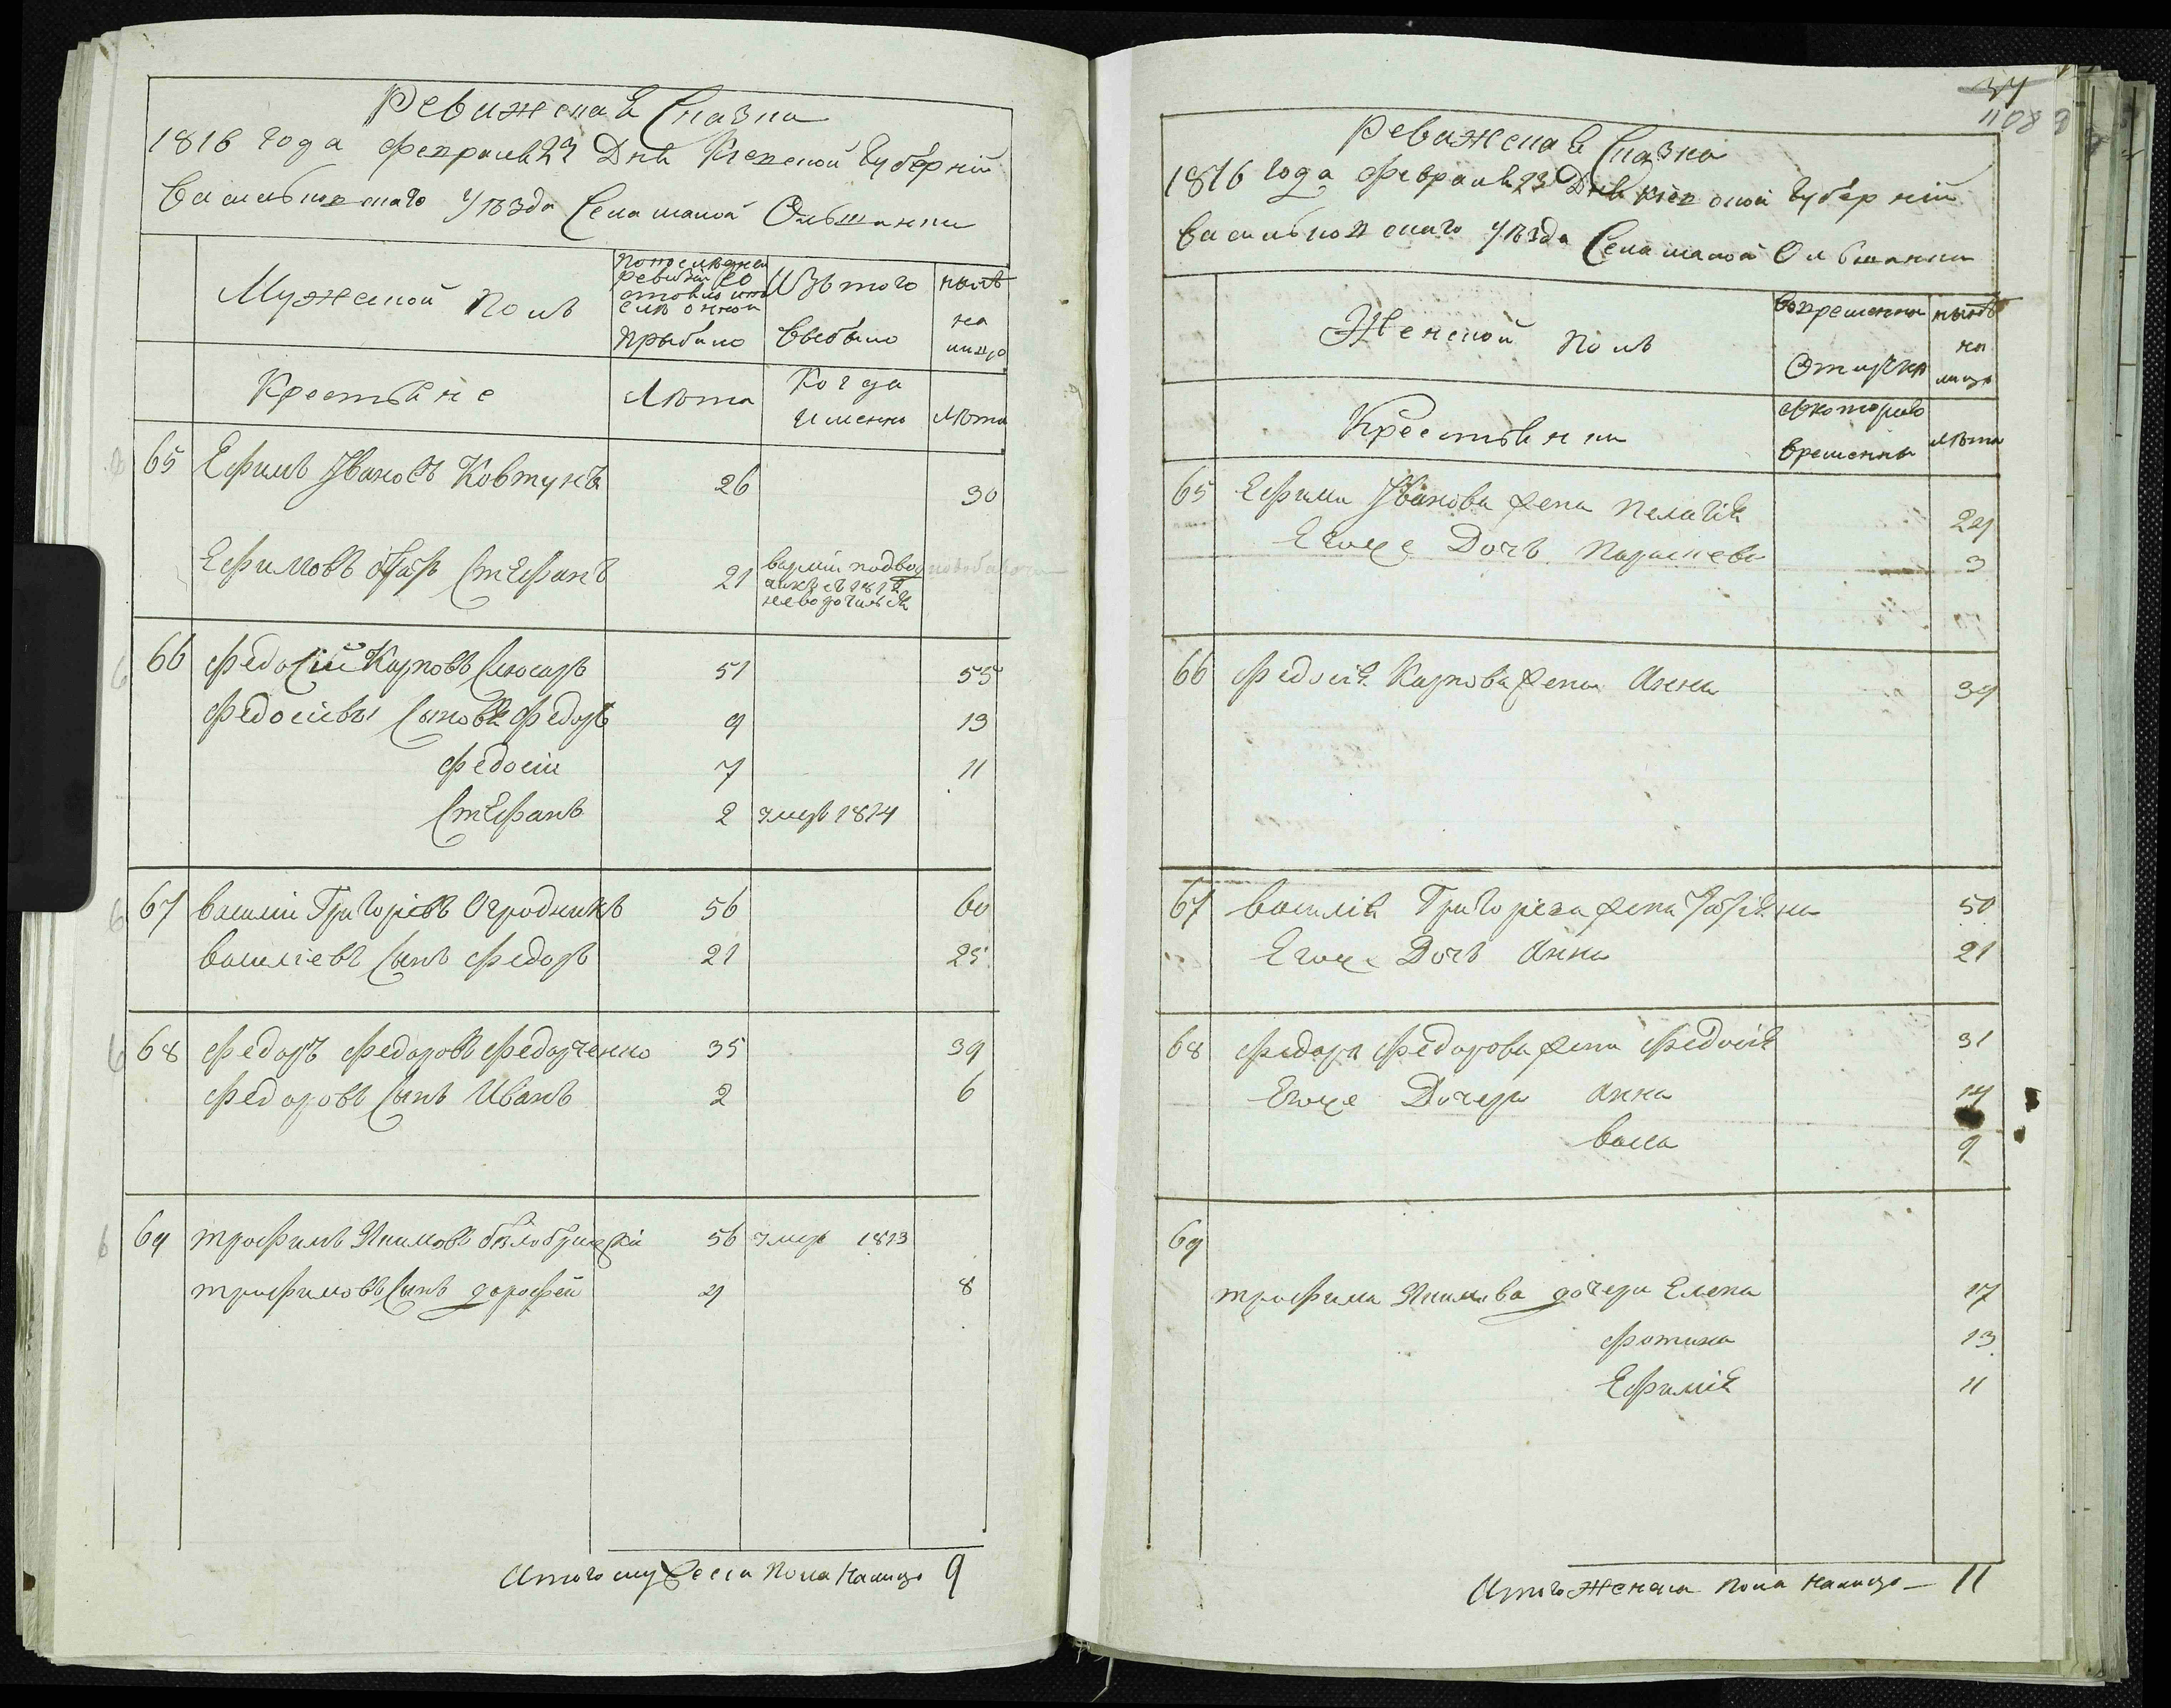 Ревижская Сказка
1816 года февраля 23 Дня Киевской Губерніи
Васильковскаго Уѣзда Села малой Ольшанки
Мужеской Полъ
По последней ревизіи состояло и после оной прыбыло
Изъ того выбыло
нынѣ на лицо
Крестьяне
Лѣта
Когда Именно
Лѣта
65 Ефимъ Ивановъ Ковтунъ 26 30
Ефимовъ братъ Стефанъ 21
66 Федосій Карповъ Слюсаръ 51 55
Федосіевы Сыновья Федоръ 9 13
Федосій 7 11
Стефанъ 2 умеръ 1814
67 Василій Григоріевъ Огродникъ 56 60
Василіевъ Сынъ Федоръ 21 25
68 Федоръ Федоровъ Федорченко 35 39
Федоровъ Сынъ Иванъ 2 6
69 Трофимъ Якимовъ Білобрицкій 56 умеръ 1813
Трофимовъ Сынъ дорофей 4 8
Итого мужеска Пола Налицо 9
34
1108
Ревижская Сказка
1816 года Февраля 23 Дня Киевской Губерніи
Васильковскаго Уѣзда Села малой Ольшанки
Женской Полъ
Во временной Отлучкѣ
нынѣ на лицо
Крестьянки
Съ котораго времени
Лѣта
65 Ефима Иванова жена Пелагія 24
Егоже Дочь Параскева 3
66 Федосія Карпова жена Анна 34
67 Василія Григоріева жена 50
Егоже Дочь Анна 21
68 Федора Федорова жена Федосія 31
Егоже Дочери Анна 14
Васса 9
69
Трофима Якимова дочери Елена 17
Фотина 13
Ефимія 11
Итого Женска пола налицо — 11